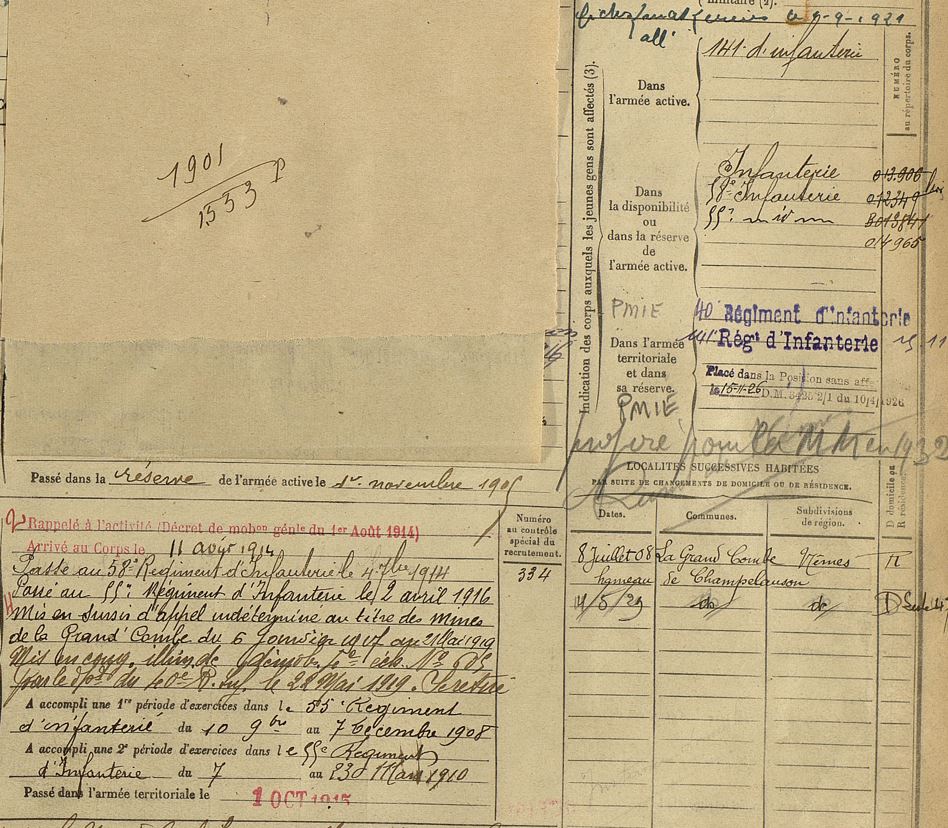 1901
1533
Passé dans la réserve de l'armée active le 1er novembre 1905
Rappelé à l'activité (Décret de mobon génle du 1er Août 1914)
Arrivé au Corps le 11 août 1914
Passé au 58e Régiment d'Infanterie le 4 7bre 1914
Passé au 55e Régiment d'Infanterie le 2 avril 1916
Mis en sursis d'appel indéterminé au titre des mines
de la Grand' Combe du 6 1917 au 21 Mai 1919
Mis en cong. illim. de démob. éch. No
par le dépôt du 40e R. Inf. le 22 Mai 1919. Se retire
A accompli une 1re période d'exercices dans le 55e Régiment
d'infanterie du 10 9bre au 7 Décembre 1908
A accompli une 2e période d'exercices dans le 55e Régiment
d'Infanterie du 7 au 23 Mars 1910
Passé dans l'armée territoriale le 1 OCT 1915
Numéro
au contrôle
spécial du
recrutement.
334
militaire (2).
le 9-9-1921
all'
Indication des corps auxquels les jeunes gens sont affectés (3).
Dans
l'armée active.
141e d'infanterie
NUMÉRO
au répertoire du corps.
Dans
la disponibilité
ou
dans la réserve
de
l'armée active.
Infanterie
58e Infanterie 012349
55e
014965
PMIE
40 Régiment d'Infanterie
141e Régt d'Infanterie
Dans l'armée
territoriale
et dans
sa réserve.
Placé dans la Position sans aff
le 15-11-26 D.M. 2/1 du 10/4/1926
PMIE
proposé pour la en 1932
LOCALITÉS SUCCESSIVES HABITÉES
PAR SUITE DE CHANGEMENTS DE DOMICILE OU DE RÉSIDENCE.
Dates.
Communes.
Subdivisions
de région.
D domicile ou
R résidence
8 Juillet 08 La Grand Combe Nîmes R
hameau de Champclauson
14/5/29 do do D